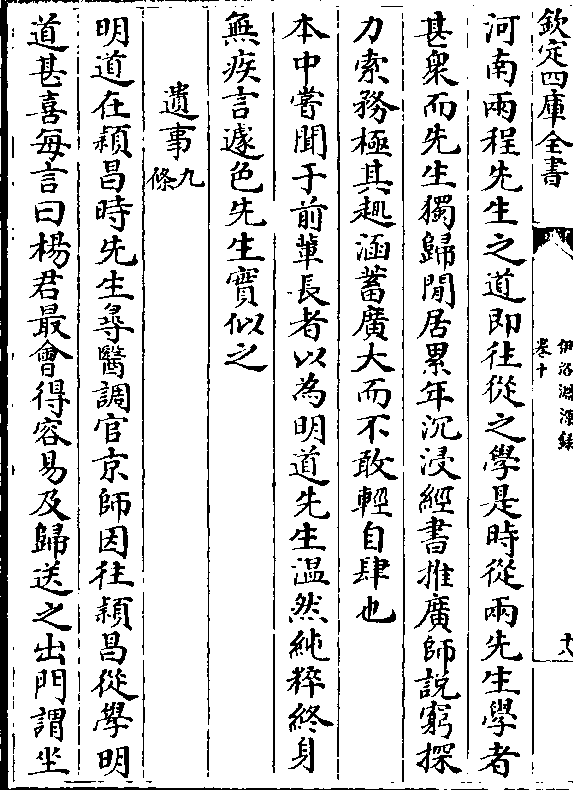 欽定四庫全書
伊洛淵源錄
卷十
十八
河南兩程先生之道即往從之學是時從兩先生學者
甚衆而先生獨歸閒居累年沉浸經書推廣師說窮探
力索務極其趣涵蓄廣大而不敢輕自肆也
本中嘗聞于前輩長者以為明道先生温然純粹終身
無疾言遽色先生實似之
遺事九條
明道在潁昌時先生尋醫調官京師因往潁昌從學明
道甚喜每言曰楊君最會得容易及歸送之出門謂坐